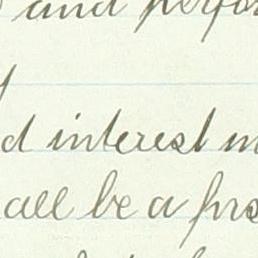 and perfor
d interest m
all be a pre